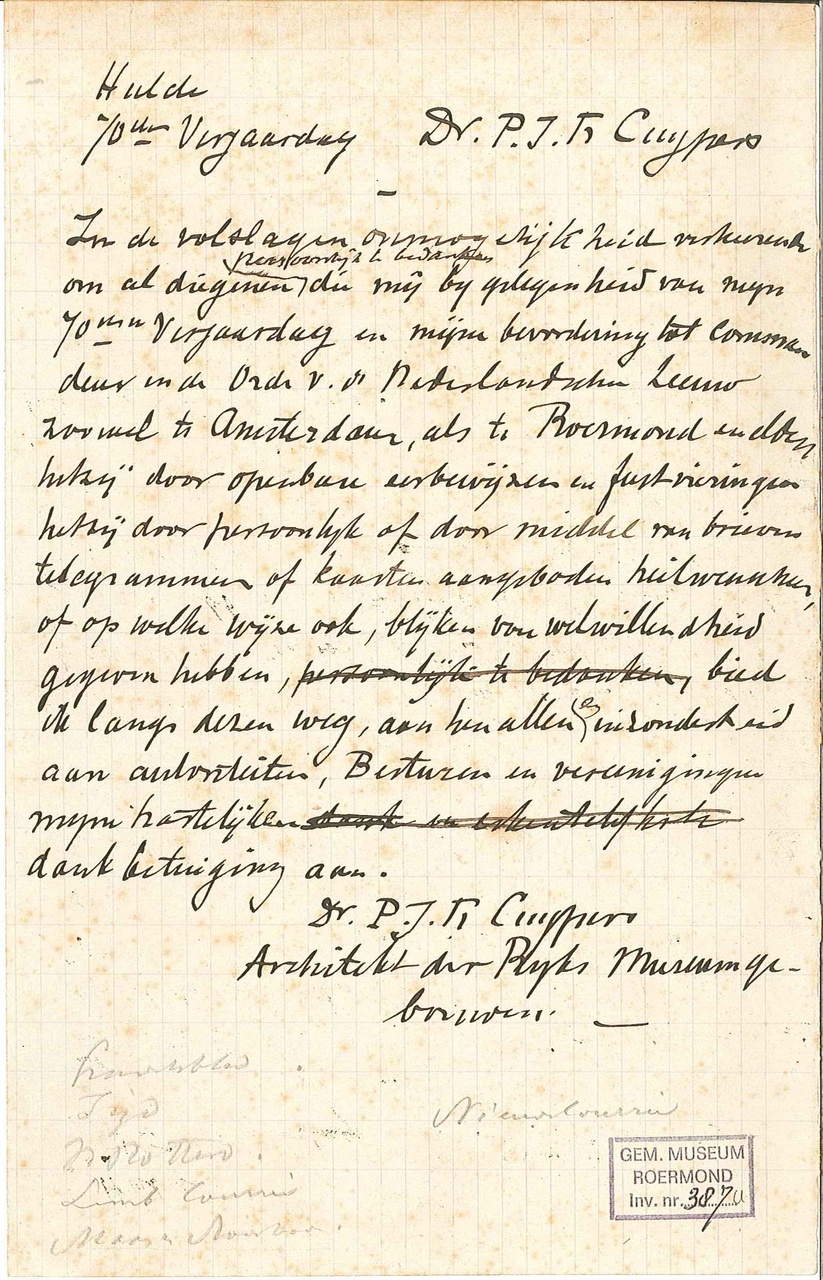 Hulde
70sten Verjaardag Dr. P. J. H. Cuypers
In de volslagen onmogelijkheid verkeerende
persoonlijk te bedanken
om al diegenen die mij by gelegenheid van mijn
70sten Verjaardag en mijne bevordering tot comman
deur in de Orde v. d. Nederlandschen Leeuw
zoowel te Amsterdam, als te Roermond en elders
hetzij door openbare eerbewijzen en feestvieringen
hetzij door persoonlijk of door middel van brieven
telegrammen of kaarten aangeboden heilwenschen,
of op welke wyze ook, blijken van welwillendheid
gegeven hebben, persoonlijk te bedanken, bied
ik langs dezen weg, aan hen allen en inzonderheid
aan autoriteiten, Besturen en vereenigingen
mijne hartelijken dank en erkentelijkste
dankbetuiging aan.
Dr. P. J. H. Cuypers
Architekt der Ryks Museumge-
bouwen.
Tijd
Nieuwe Courier
Limb Courrier
Maas en Roerbode
GEM. MUSEUM
ROERMOND
Inv. nr. 3870